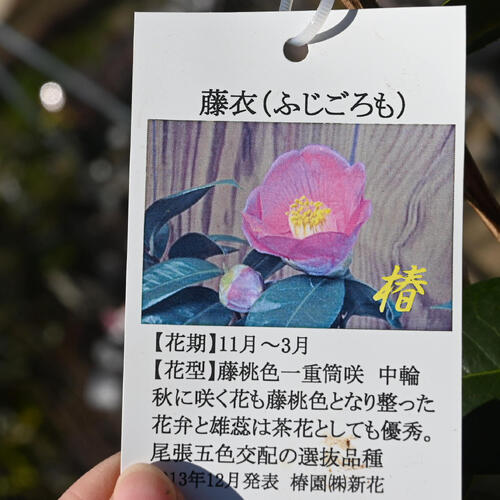 藤衣(ふじごろも)
椿
【花期】11月～3月
【花型】藤桃色一重筒咲 中輪
秋に咲く花も藤桃色となり整った
花弁と雄蕊は茶花としても優秀。
尾張五色交配の選抜品種
13年12月発表 椿園㈱新花